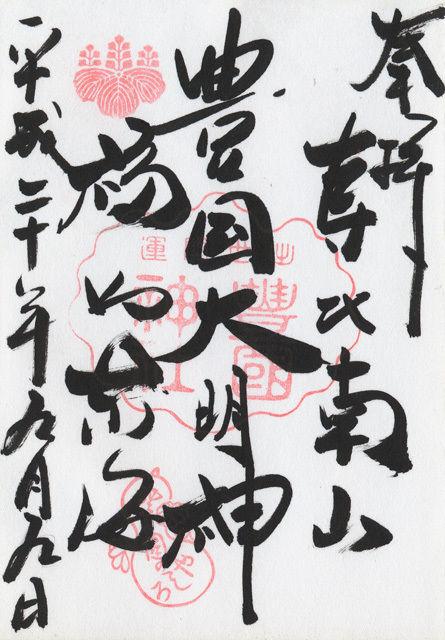 奉拝
寿比南山
豊国大明神
福如東海
平成二十八年九月九日
出世開運
豐國
神社